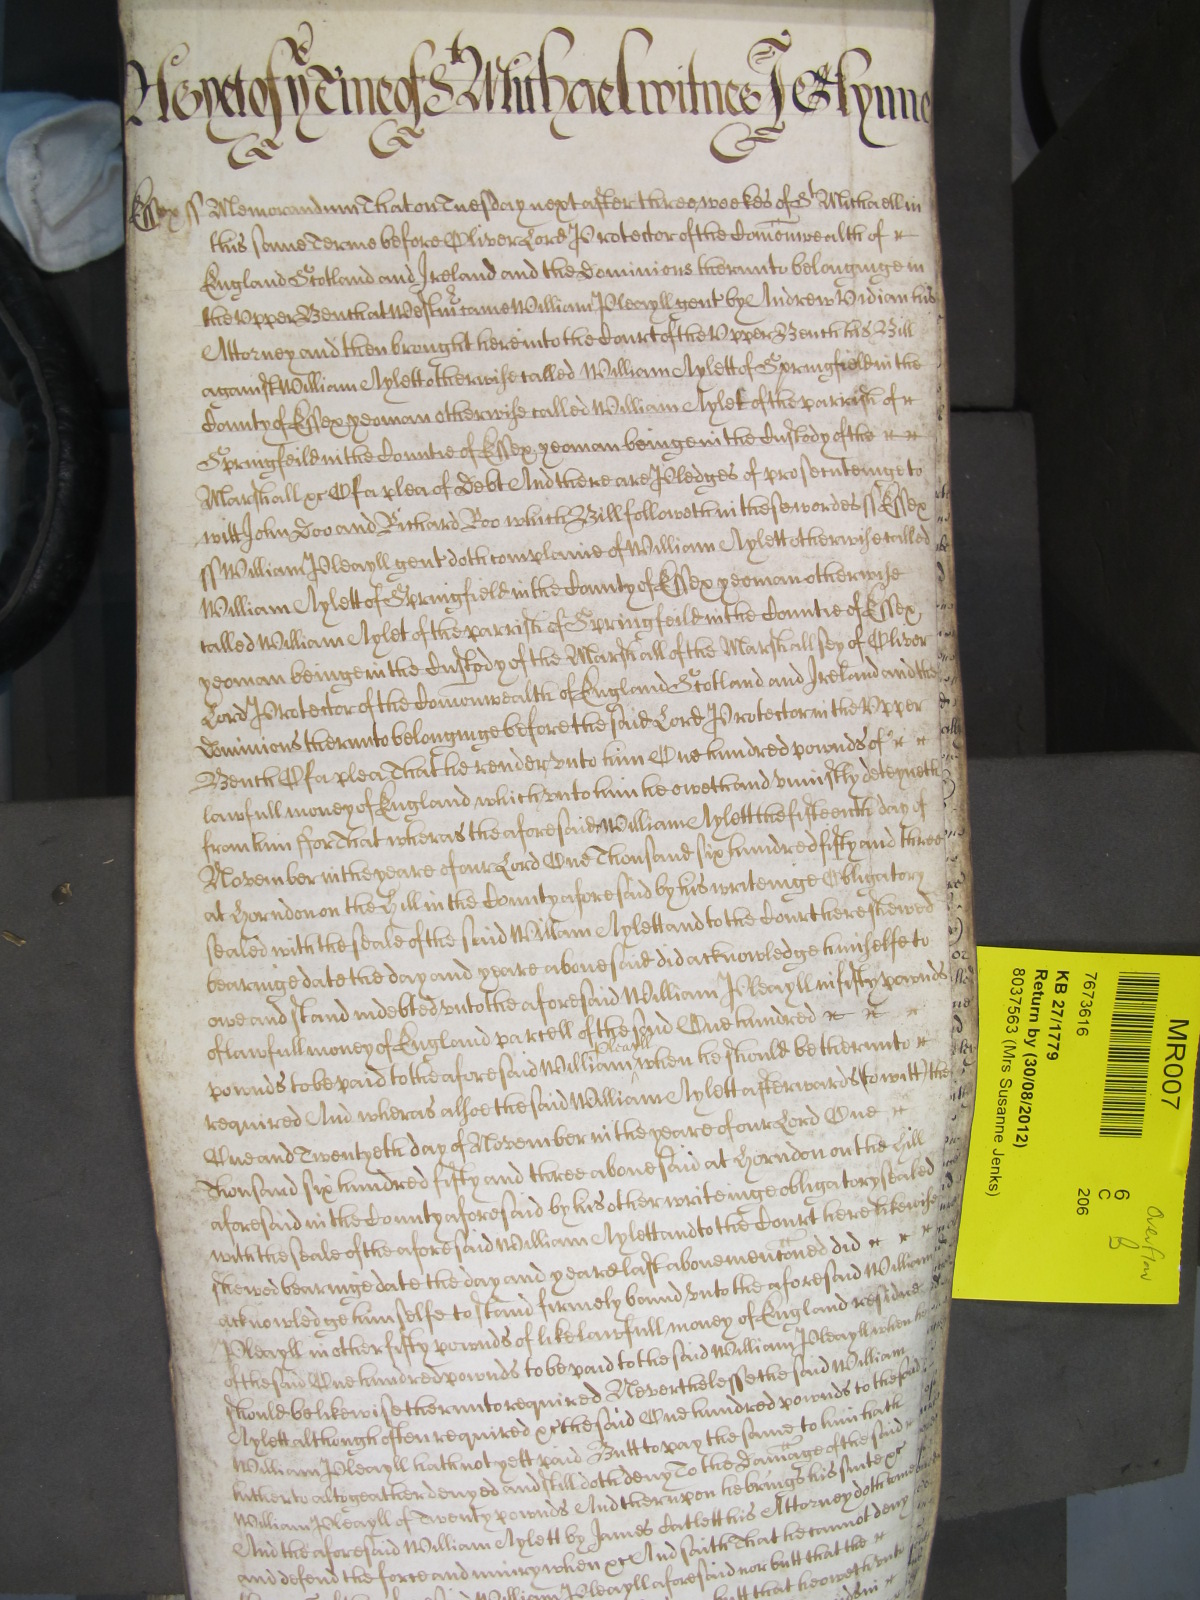 As yet of ye Time of St Michael witnes J Glynne
Essex ss Memorandum That on Tuesday next after three weekes of St Michaell in
this same Terme before Oliver Lord Protector of the Comonwealth of
England Scotland and Ireland and the Dominions therunto belonginge in
the Upper Bench at Westmr came William Pleayll gent by Andrew Vidian his
Attorney and then brought here into the Court of the Upper Bench his Bill
against William Aylett otherwise called William Aylett of Springfield in the
County of Essex yeoman otherwise called William Aylet of the parrish of
Springfeild in the Countie of Essex yeoman beinge in the Custody of the
Marshall &c Of a plea of Debt And there are Pledges of prosecuteinge to
witt John Doo and Richard Roo which Bill followeth in these wordes ss Essex
ss William Pleayll gent doth complaine of William Aylett otherwise called
William Aylett of Springfield in the County of Essex yeoman otherwise
called William Aylet of the parrish of Springfeild in the Countie of Essex
yeoman beinge in the Custody of the Marshall of the Marshallsey of Oliver
Lord Protector of the Comonwealth of England Scotland and Ireland and the
Dominions therunto belonginge before the said Lord Protector in the Upper
Bench Of a plea That he render unto him One hundred pownds of
lawfull money of England which unto him he oweth and uniustly deteyneth
from him ffor That wheras the aforesaid William Aylett the fifteenth day of
November in the yeare of our Lord One Thousand six hundred fifty and three
at Horndon on the Hill in the County aforesaid by his writeinge Obligatory
sealed with the seale of the said William Aylett and to the Court here shewed
bearinge date the day and yeare above said did acknowledge himselfe to
owe and stand indebted unto the aforesaid William Pleayll in fifty pownds
of lawfull money of England parcell of the said One hundred
pownds to be paid to the aforesaid William Pleayll when he should be therunto
required And wheras alsoe the said William Aylett afterwards (to witt) the
One and Twentyeth day of November in the yeare of our Lord One
Thousand six hundred fifty and three above said at Horndon on the Hill
aforesaid in the County aforesaid by his other writeinge obligatory sealed
with the seale of the aforesaid William Aylett and to the Court here likewise
shewed bearinge date the day and yeare last above mentoned did
acknowledge himselfe to stand firmely bound unto the aforesaid William
Pleayll in other fifty pownds of like lawfull money of England residue
of the said One hundred pownds to be paid to the said William Pleayll when he
should be likewise therunto required Neverthelesse the said William
Aylett although often required &c the said One hundred pownds to the said
William Pleayll hath not yett paid Butt to pay the same to him hath
hitherto altogeather denyed and still doth deny To the Damage of the said
William Pleayll of Twenty pownds And therupon he brings his suite &c
And the aforesaid William Aylett by James Catlett his Attorney doth come
and defend the force and iniury when &c And saith That he cannot deny
William Pleayll aforesaid nor butt that the
butt that he oweth unto
MR007
7673616
KB 27/1779
Return by (30/08/2012)
8037563 (Mrs Susanne Jenks)
6
C
206
Overflow
B